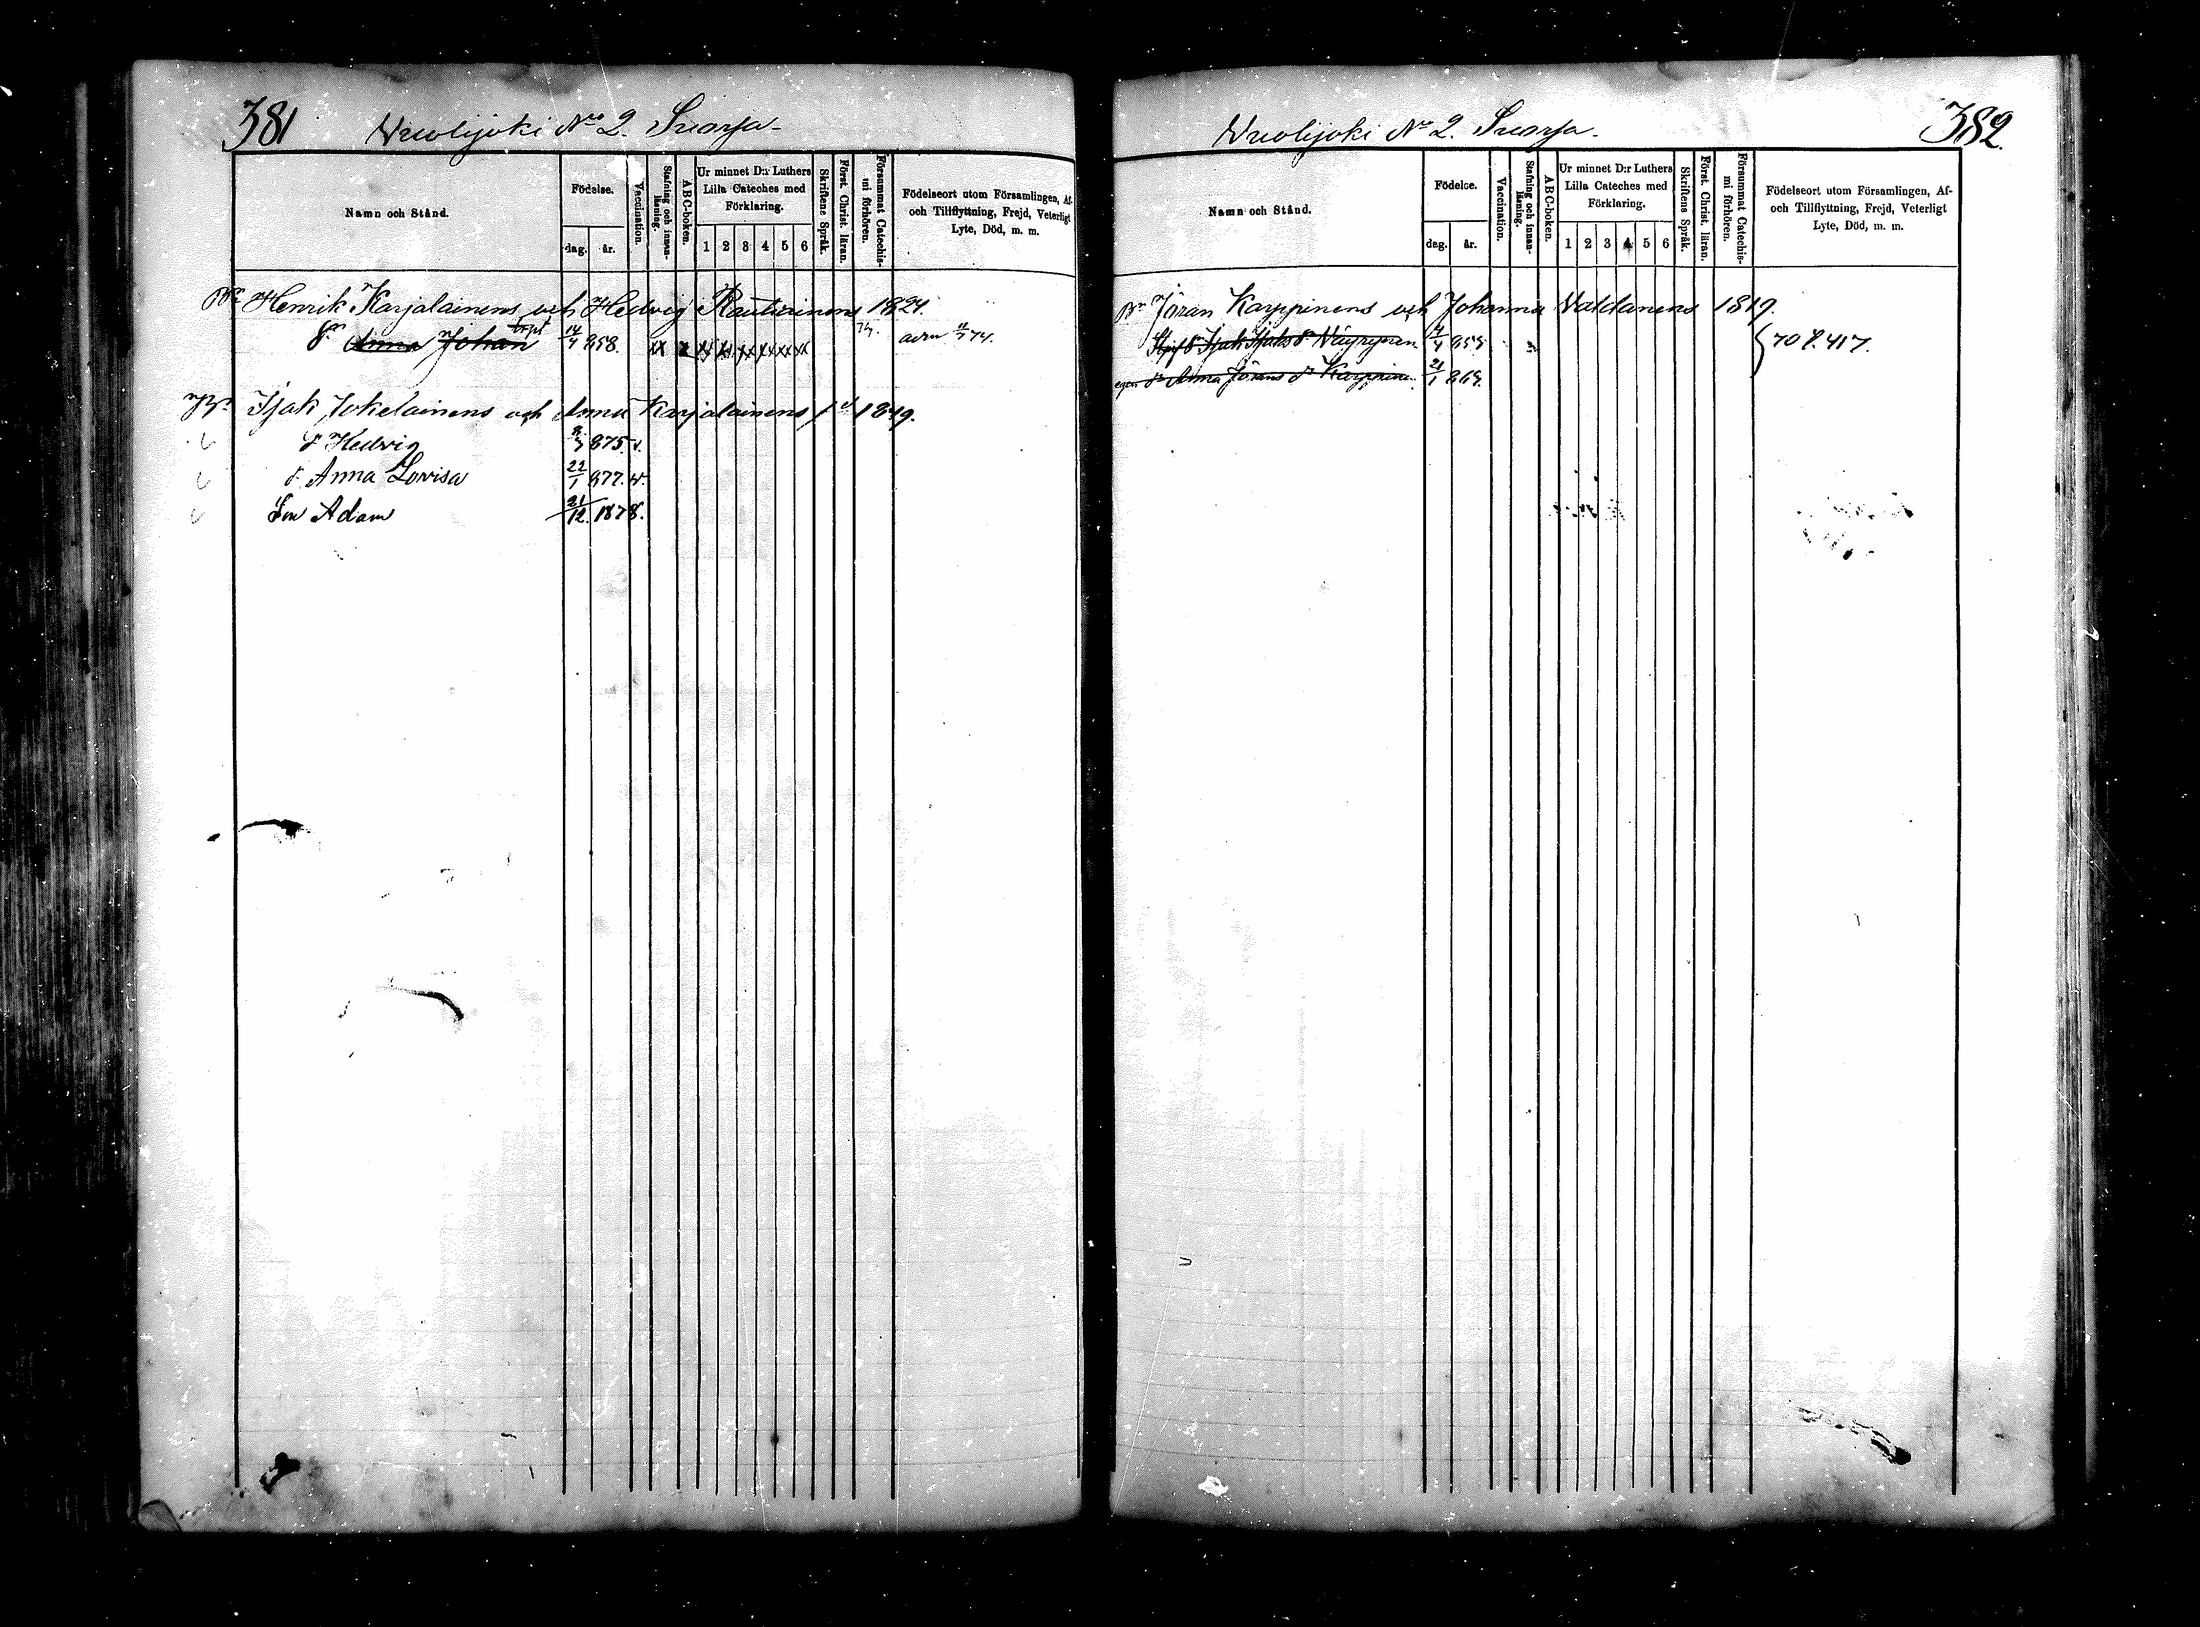 381 Wuolijoki No 2. Suarja.
Namn och Stånd.
Födelse.
dag. år.
Vaccination.
Stafning och innan-läsning.
ABC-boken.
Ur minnet D:r Luthers
Lilla Cateches med
Förklaring.
1 2 3 4 5 6
Skriftens Språk.
Först. Christ. läran.
Försummat Catechis-
mi förhören.
Födelseort utom Församlingen, Af-
och Tillflyttning, Frejd, Veterligt
Lyte, Död, m. m.
Henrik Karjalainens och Hedvig Rautiainens 1824.
Anna Johan 14/7 858. xx x xx xx xx xx xx xx 74.
Isak Jokelainens och Anna Karjalainens 1849.
d Hedvig 875. v.
d. Anna Lovisa 22/1 877. v.
Son Adam 21/12. 1878.
Wuolijoki No 2. Suarja. 382
Namn och Stånd.
Födelse.
dag. år.
Vaccination.
Stafning och innan-läsning.
ABC-boken.
Ur minnet D:r Luthers
Lilla Cateches med
Förklaring.
1 2 3 4 5 6
Skriftens Språk.
Först. Christ. läran.
Försummat Catechis-
mi förhören.
Födelseort utom Församlingen, Af-
och Tillflyttning, Frejd, Veterligt
Lyte, Död, m. m.
Jöran Karppinens och Johanna 1819.
Isak Isaks 4/4 70 417.
Anna Jörans dr Karppinen 21/1